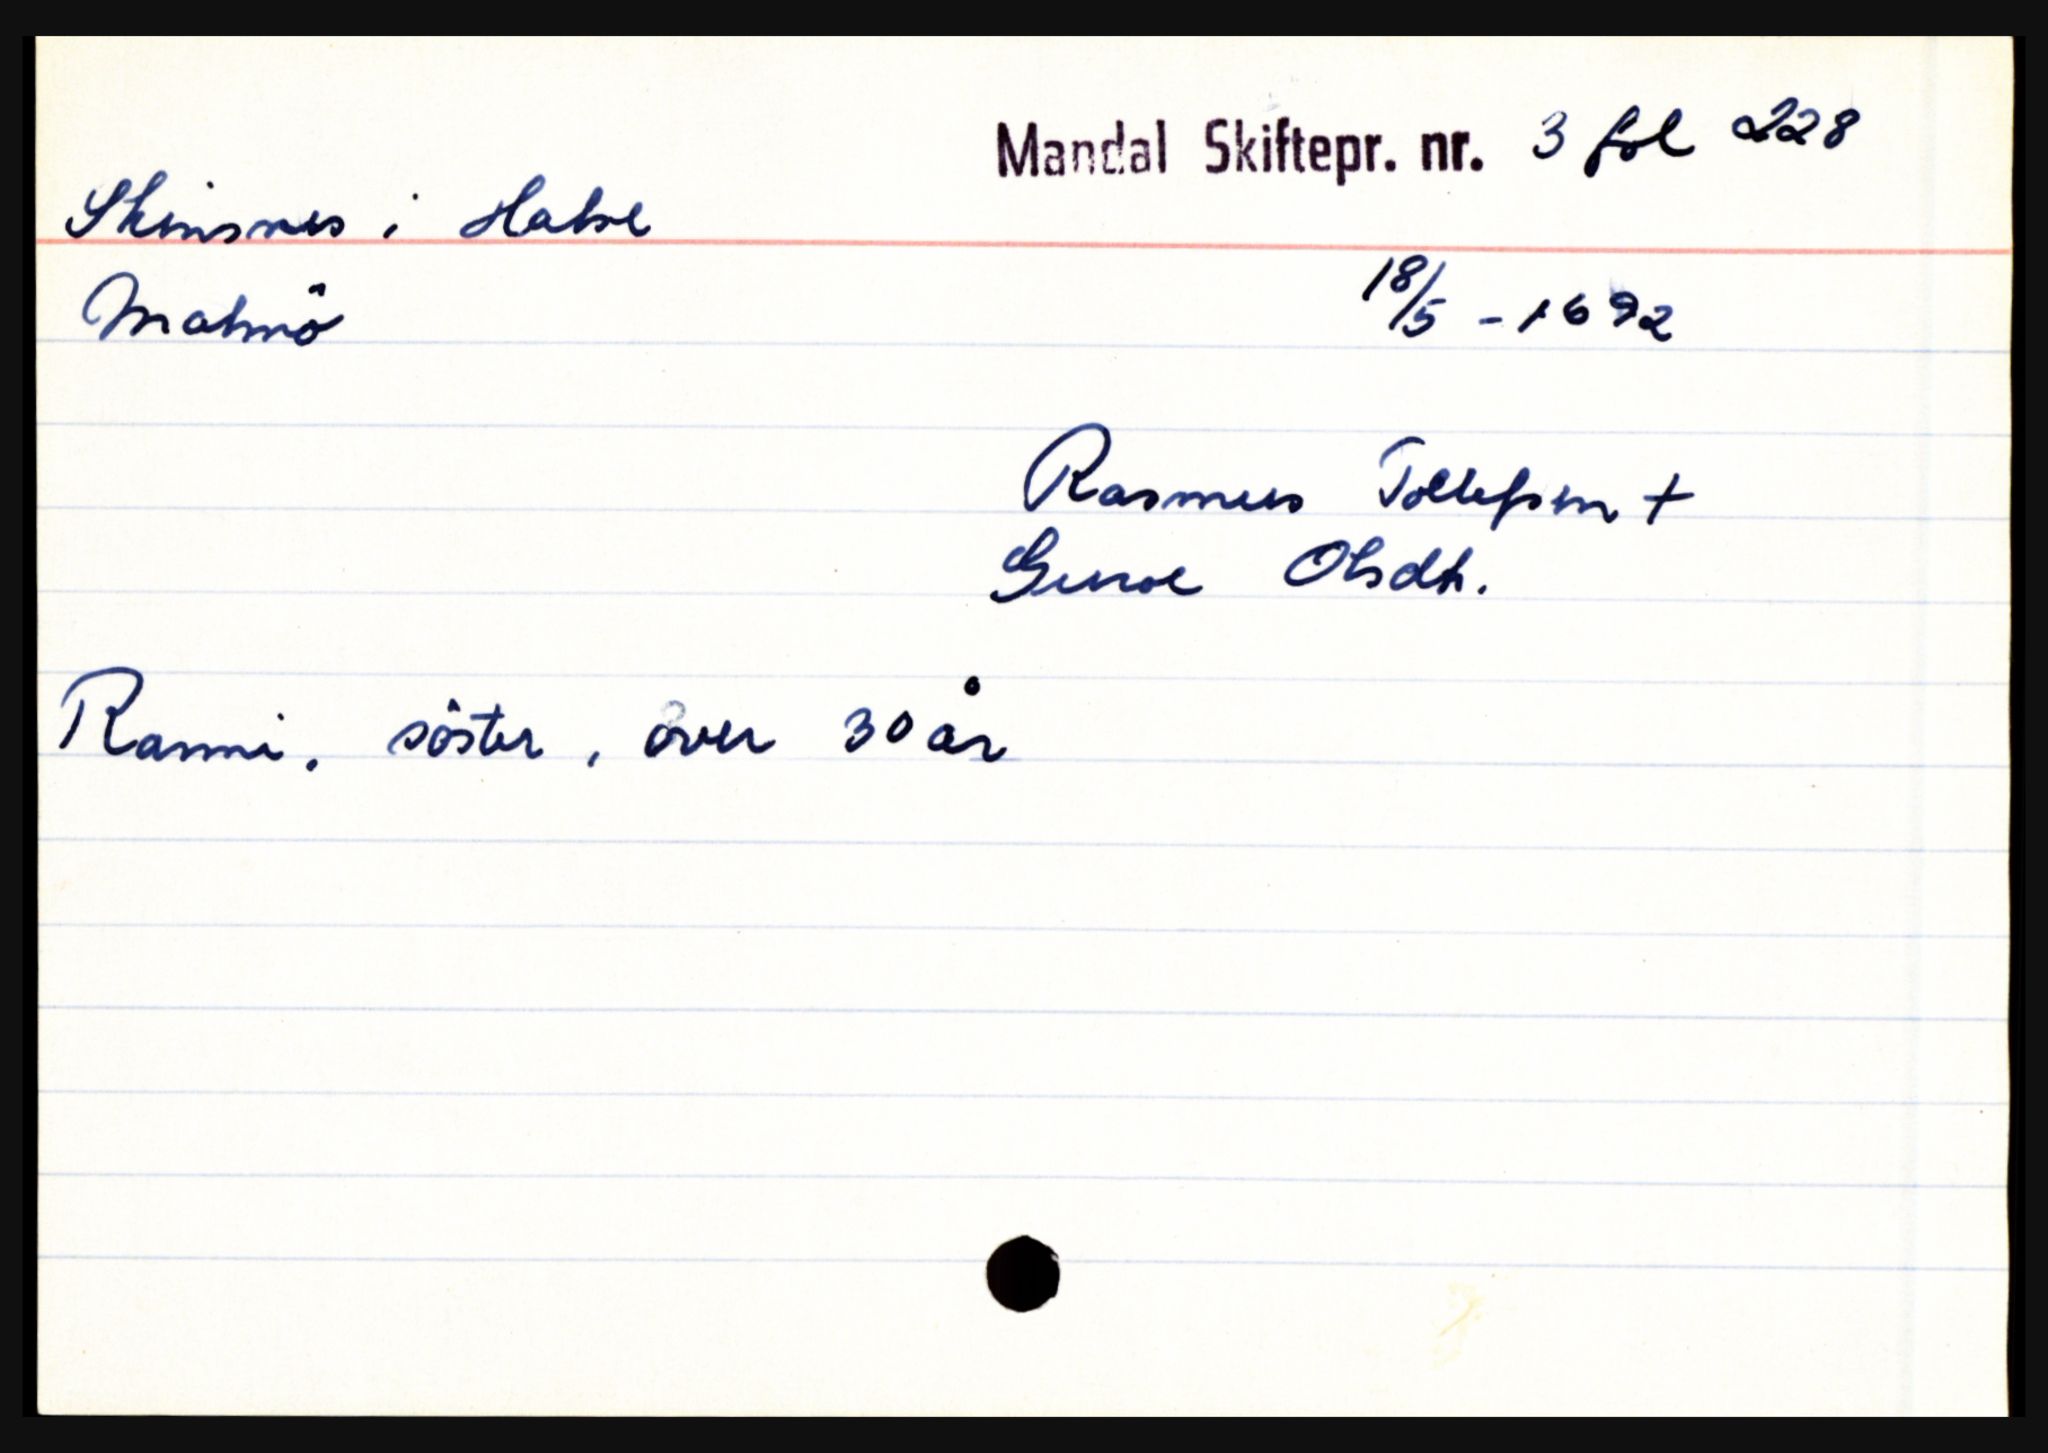 Mandal Skiftepr. nr. 3 fol 228
Skinsnes i Halse
Malmö
18/5 - 1692
Rasmus Tollefsen +
Guroe Olsdtr.
Ranni, söster, over 30 år